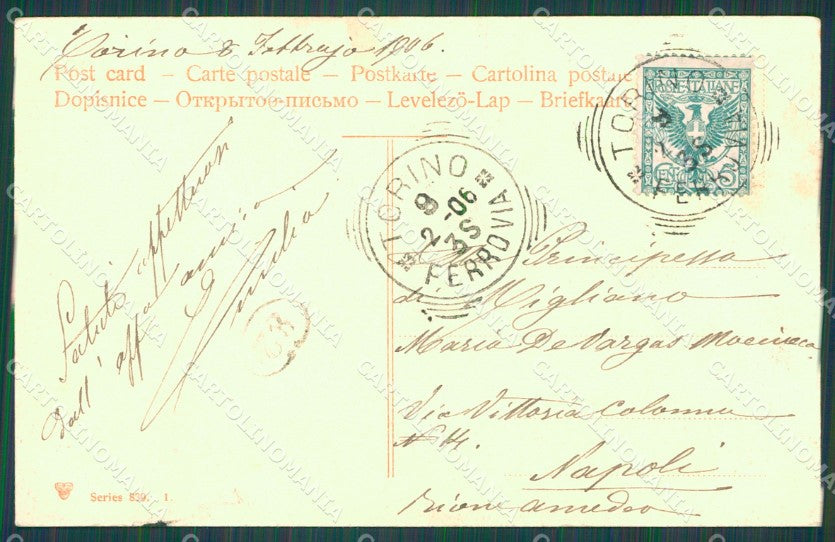 Torino 8 Febbrajo 1906.
Post card – Carte postale – Postkarte – Cartolina postale
Dopisnice – Открытое письмо – Levelező-Lap – Briefkaart
POSTE ITALIANE
TORINO
FERROVIA
TORINO
9 2 -06
3S
FERROVIA
Saluti affettuosi
dall' aff.
Principessa
di Migliano
Maria De Vargas
Via Vittoria Colonna
N 14.
Napoli
rione amedeo
Series 830. 1.
CARTOLINOMANIA